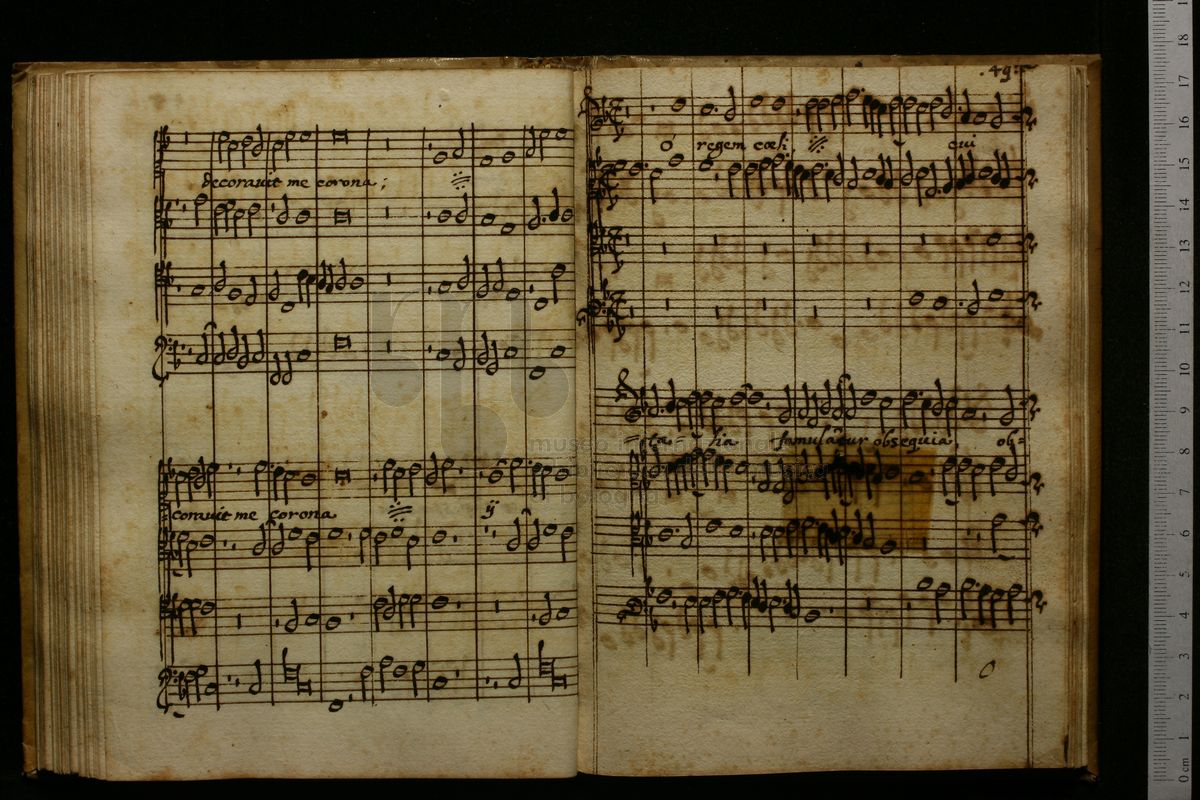 decoravit me corona;
coravit me corona ij
49.
O regem cœli cui
ta lia famulãtur obsequia, ob=
museo internazionale
bologna
0 cm 1 2 3 4 5 6 7 8 9 10 11 12 13 14 15 16 17 18